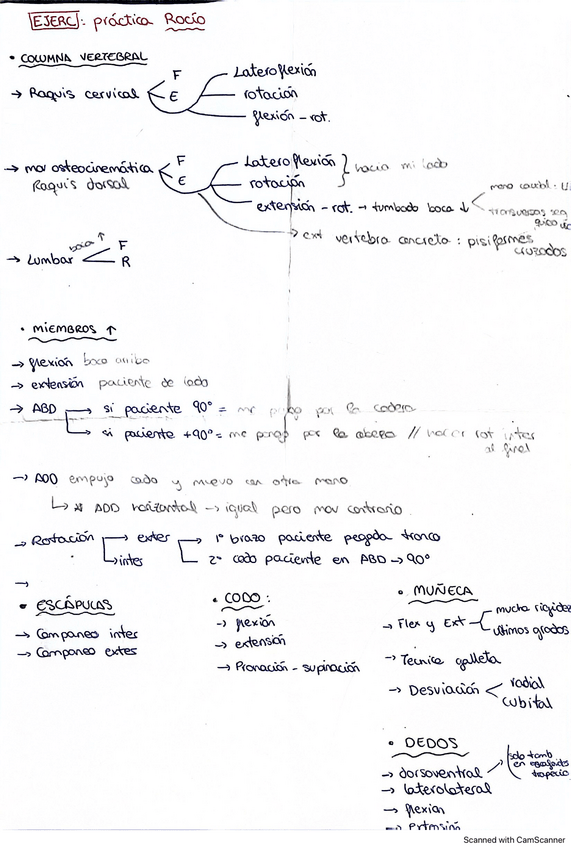 EJERC: práctica Rocío
• COLUMNA VERTEBRAL
→ Raquis cervical
F
E
Lateroflexión
rotación
flexión - rot.
→ mov osteocinemática
Raquis dorsal
F
E
Lateroflexión
rotación
} hacia mi lado
extensión - rot. → tumbado boca ↓
mano caudal:
transversos
→ ext vertebra concreta: pisiformes
cruzados
→ Lumbar
boca ↑
F
R
• MIEMBROS ↑
→ flexión boca arriba
→ extensión paciente de lado
→ ABD
→ si paciente 90° = me pongo por la cadera
→ si paciente +90° = me pongo por la cabeza // hacer rot inter
al final
→ ADD empujo codo y muevo con otra mano
↳ ADD horizontal → igual pero mov contrario
→ Rotación
→ exter
→ inter
→ 1º brazo paciente pegado tronco
2º codo paciente en ABD → 90°
→
• ESCÁPULAS
→ Campaneo inter
→ Campaneo exter
• CODO:
→ flexión
→ extensión
→ Pronación - supinación
• MUÑECA
→ Flex y Ext
mucha rigidez
últimos grados
→ Técnica galleta
→ Desviación
radial
cubital
• DEDOS
→ dorsoventral
solo tamb
en escafoides
trapecio
→ laterolateral
→ flexión
→ extensión
Scanned with CamScanner